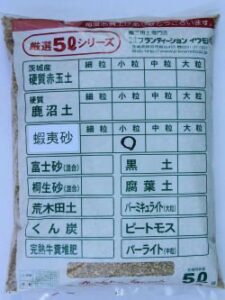 厳選5ℓシリーズ
細粒 小粒 中粒 大粒
茨城産
硬質赤玉土
細粒 小粒 中粒 大粒
硬質
鹿沼土
細粒 小粒 中粒 大粒
蝦夷砂
富士砂(混合) 黒土
桐生砂(混合) 腐葉土
荒木田土 バーミキュライト(大粒)
くん炭 ピートモス
完熟牛糞堆肥 パーライト(中粒)
5ℓ